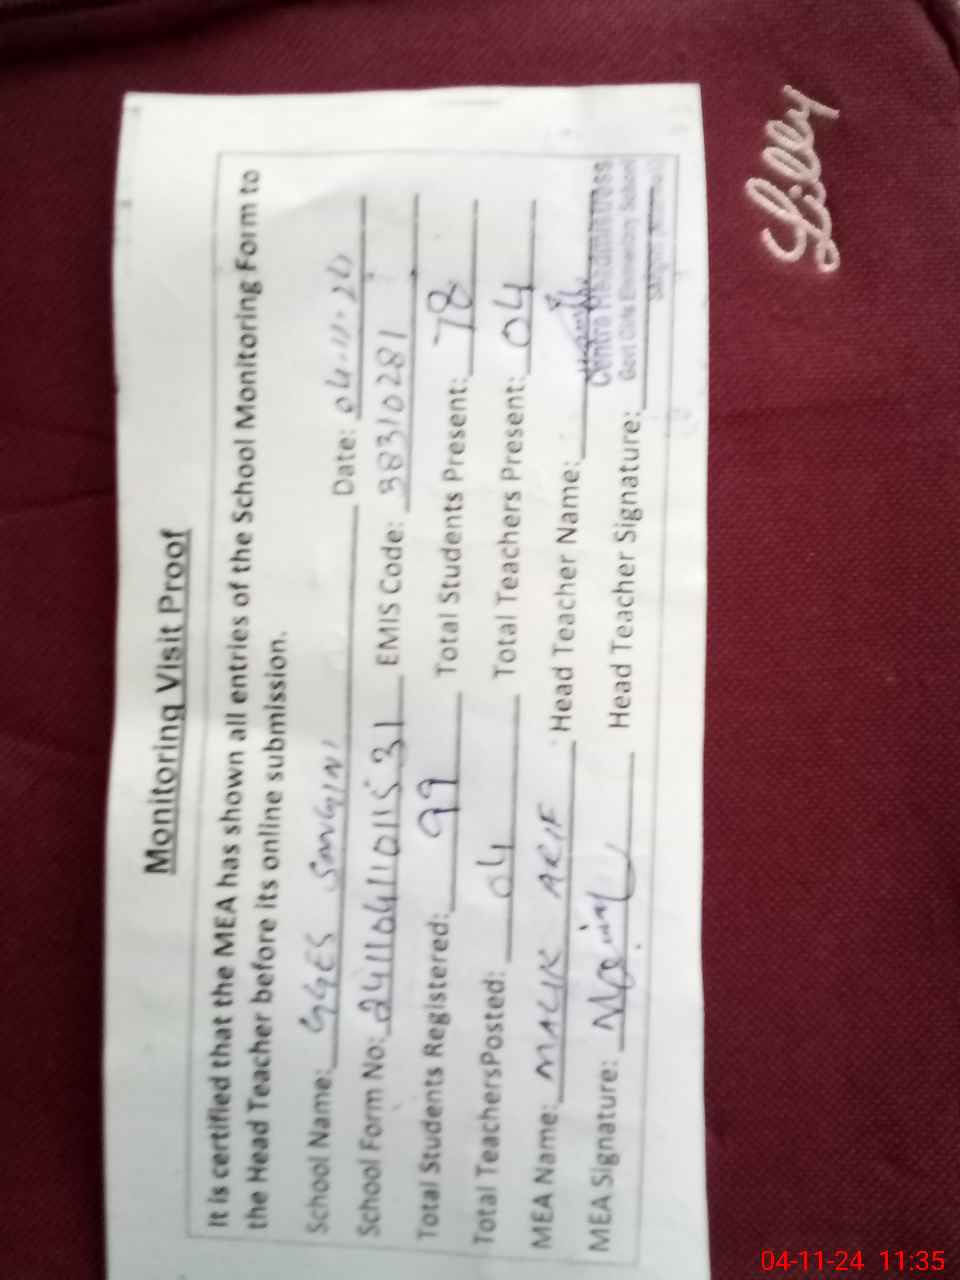 Monitoring Visit Proof
It is certified that the MEA has shown all entries of the School Monitoring Form to
the Head Teacher before its online submission.
School Name: GGES SANGINI Date: 04-11-24
School Form No: 24110411011531 EMIS Code: 38310281
Total Students Registered: 99 Total Students Present: 78
Total TeachersPosted: 04 Total Teachers Present: 04
MEA Name: MALIK ARIF Head Teacher Name:
Centre Headmistress
Govt Girls Elementary School
MEA Signature: Head Teacher Signature:
Lilly
04-11-24 11:35